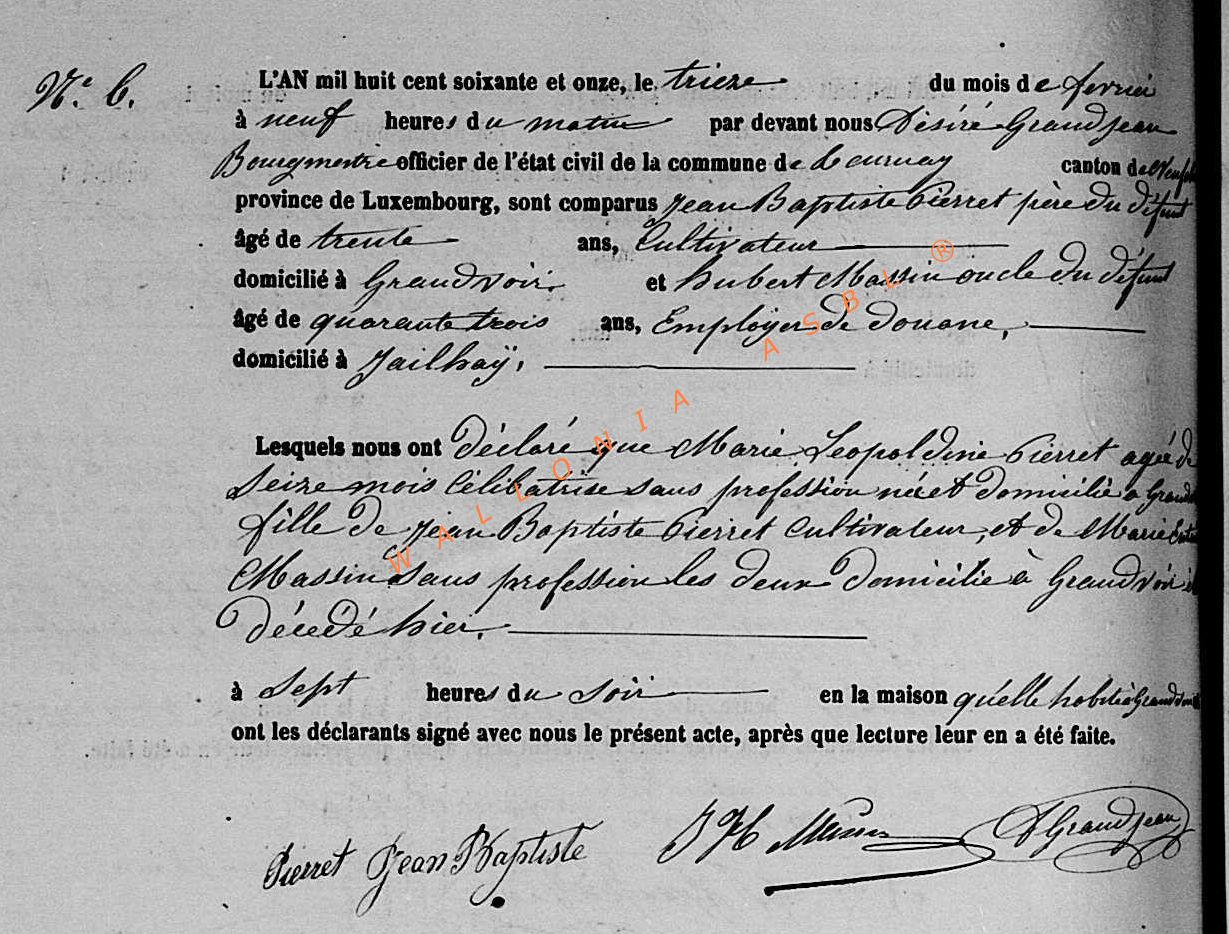 N° 6.
L'AN mil huit cent soixante et onze, le trieze du mois de fevrier
à neuf heures du matin par devant nous Désiré Grandjean
Bourgmestre officier de l'état civil de la commune de Tournay canton de Neufch
province de Luxembourg, sont comparus Jean Baptiste Pierret père du défunt
âgé de trente ans, Cultivateur
domicilié à Grandvoir. et hubert Massin oncle du défunt
âgé de quarante trois ans, Employer de douane,
domicilié à Jailhaÿ,
Lesquels nous ont déclaré que Marie Leopoldine Pierret agée de
Seize mois Célibatrise sans profession née et domicilié a Grand
fille de Jean Baptiste Pierret Cultivateur, et de Marie
Massin Sans profession les deux Domicilie à Grandvoir
Décédé hier.
à Sept heures du soir en la maison qu'elle habite à Grandvoir
ont les déclarants signé avec nous le présent acte, après que lecture leur en a été faite.
Pierret Jean Baptiste J H Massin D Grandjean
WALLONIA ASBL ®